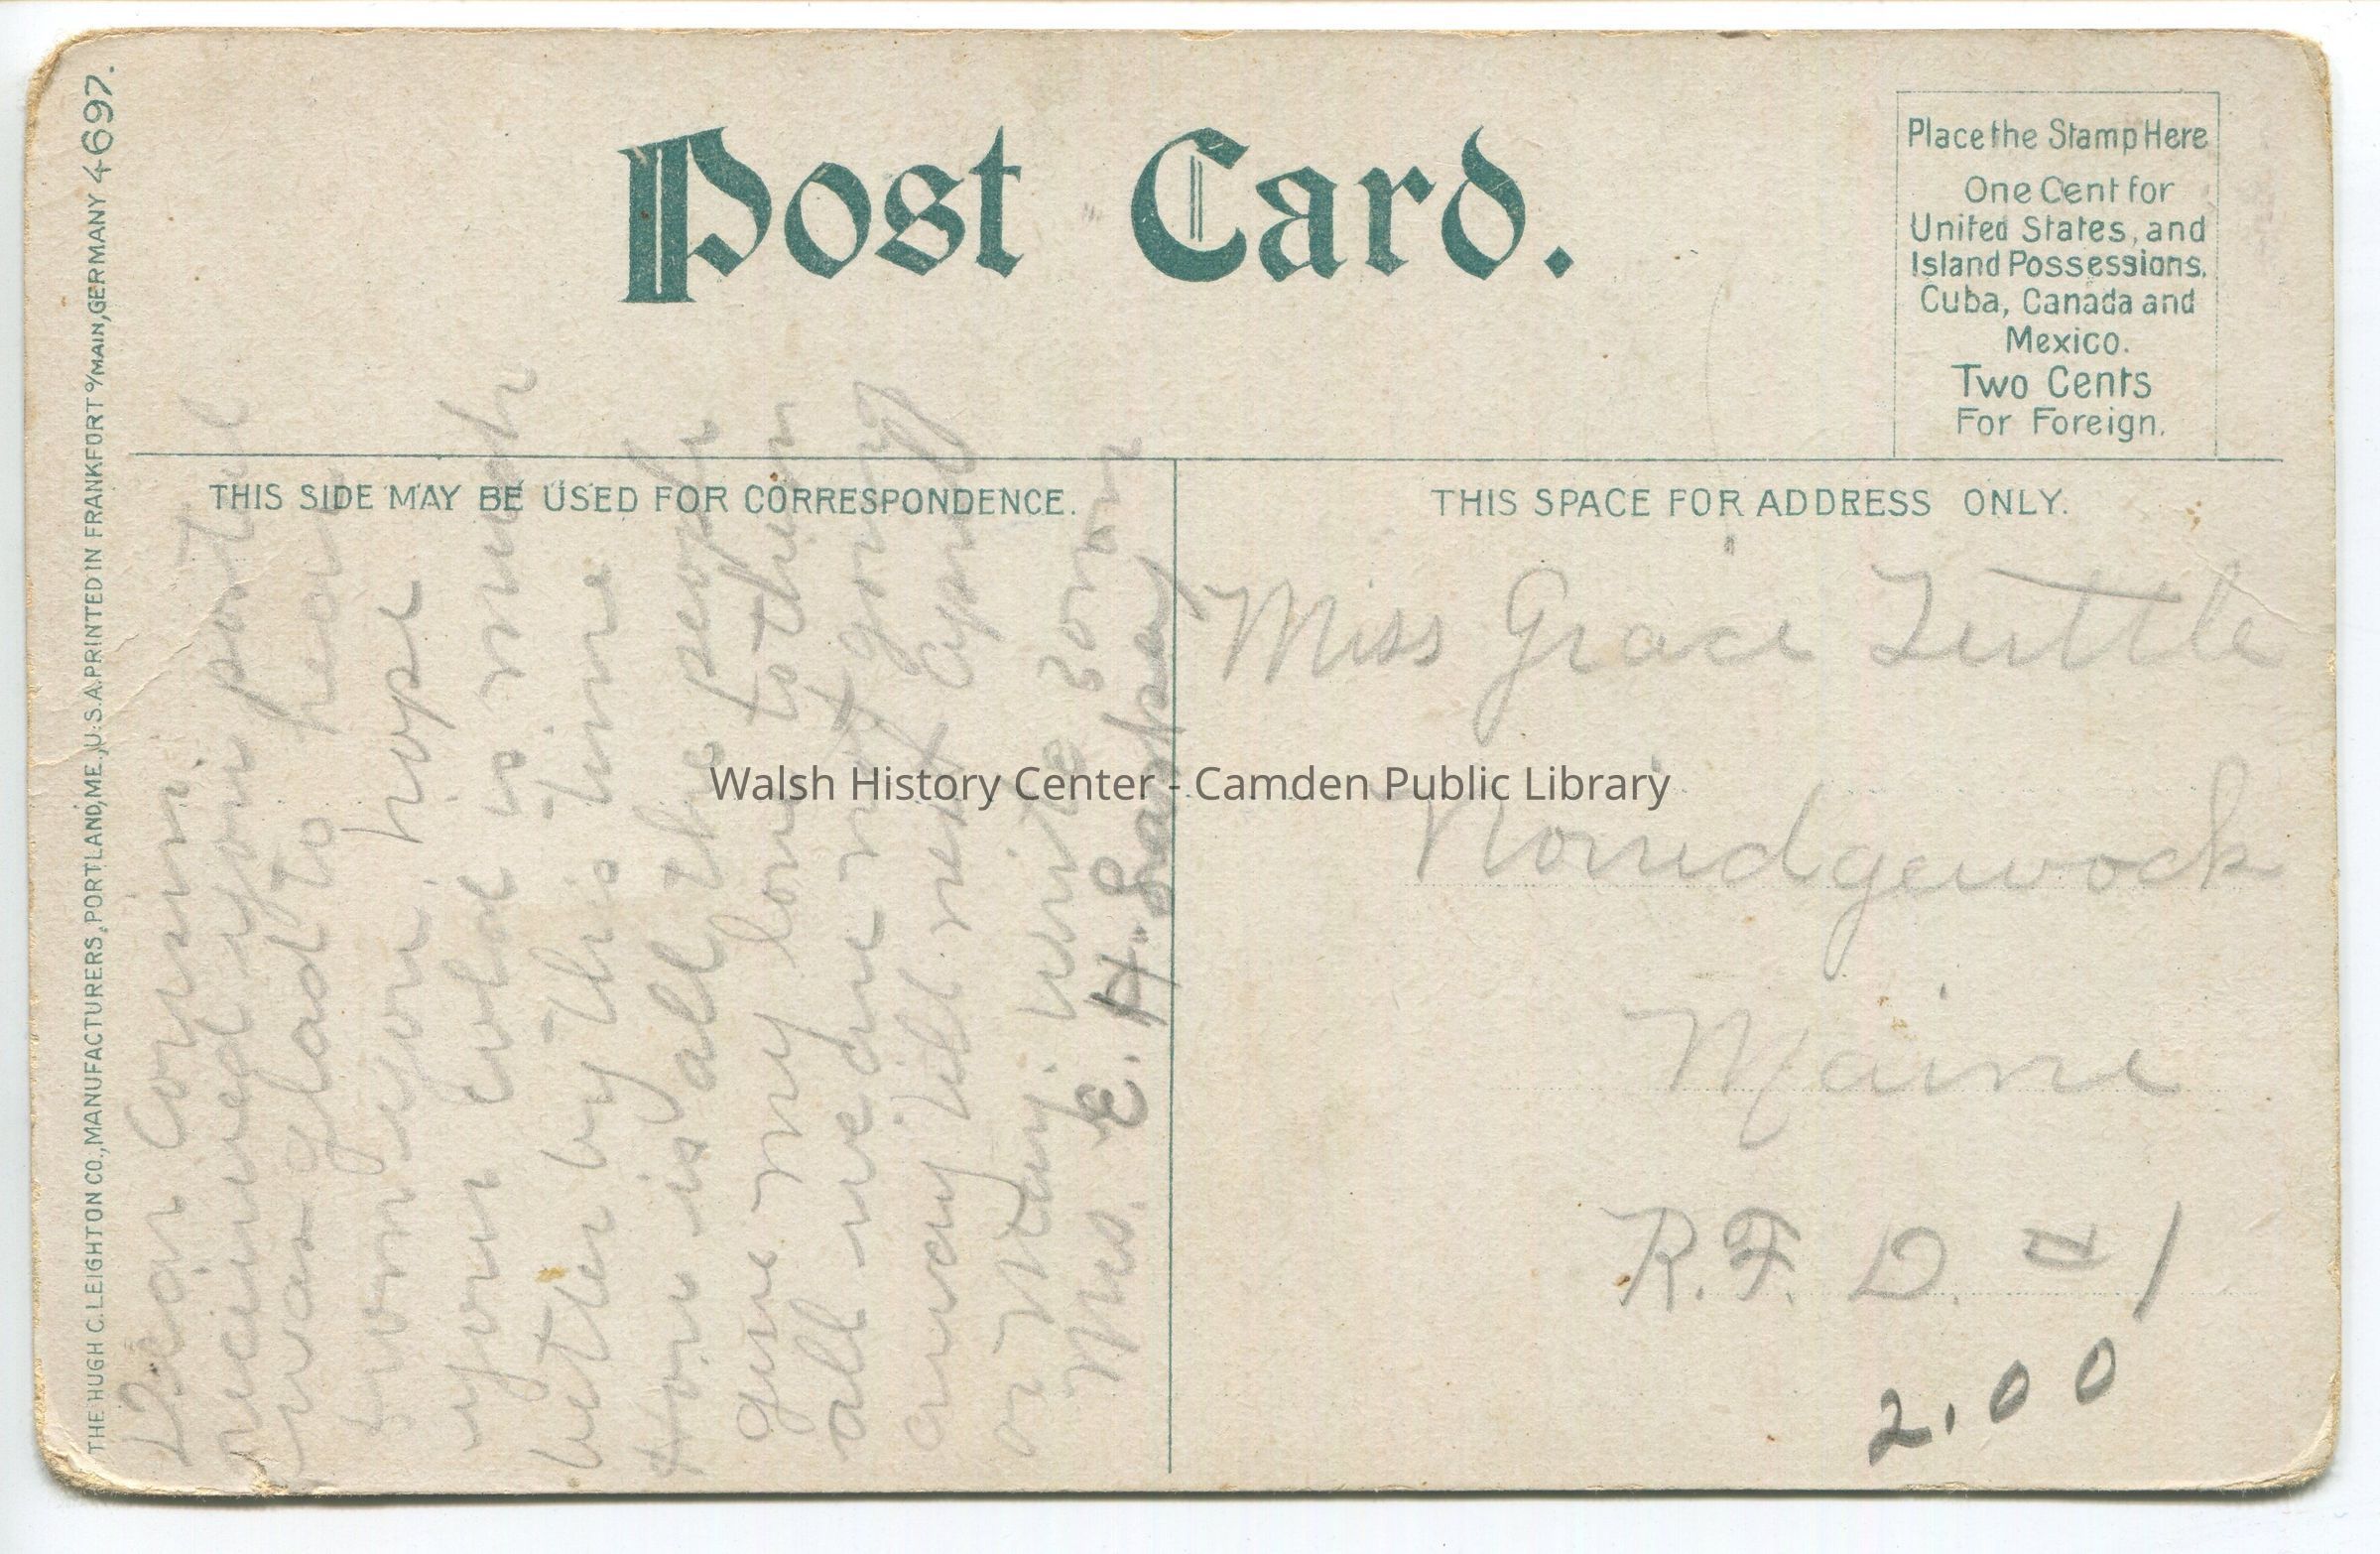 Post Card.
Place the Stamp Here
One Cent for
United States, and
Island Possessions,
Cuba, Canada and
Mexico.
Two Cents
For Foreign.
THIS SIDE MAY BE USED FOR CORRESPONDENCE.
THIS SPACE FOR ADDRESS ONLY.
THE HUGH C. LEIGHTON CO., MANUFACTURERS, PORTLAND, ME., U.S.A. PRINTED IN FRANKFORT o/MAIN, GERMANY 4697.
Dear Cousin.
recieved your postal
was glad to hear
from you. hope
your cold is much
better by this time
How is all the people
give my love to them
all we are not going
away till next April
or May. write soon
Mrs. E. H.
Miss Grace Tuttle
Norridgewock
Maine
R. F. D. #1
2.00
Walsh History Center - Camden Public Library